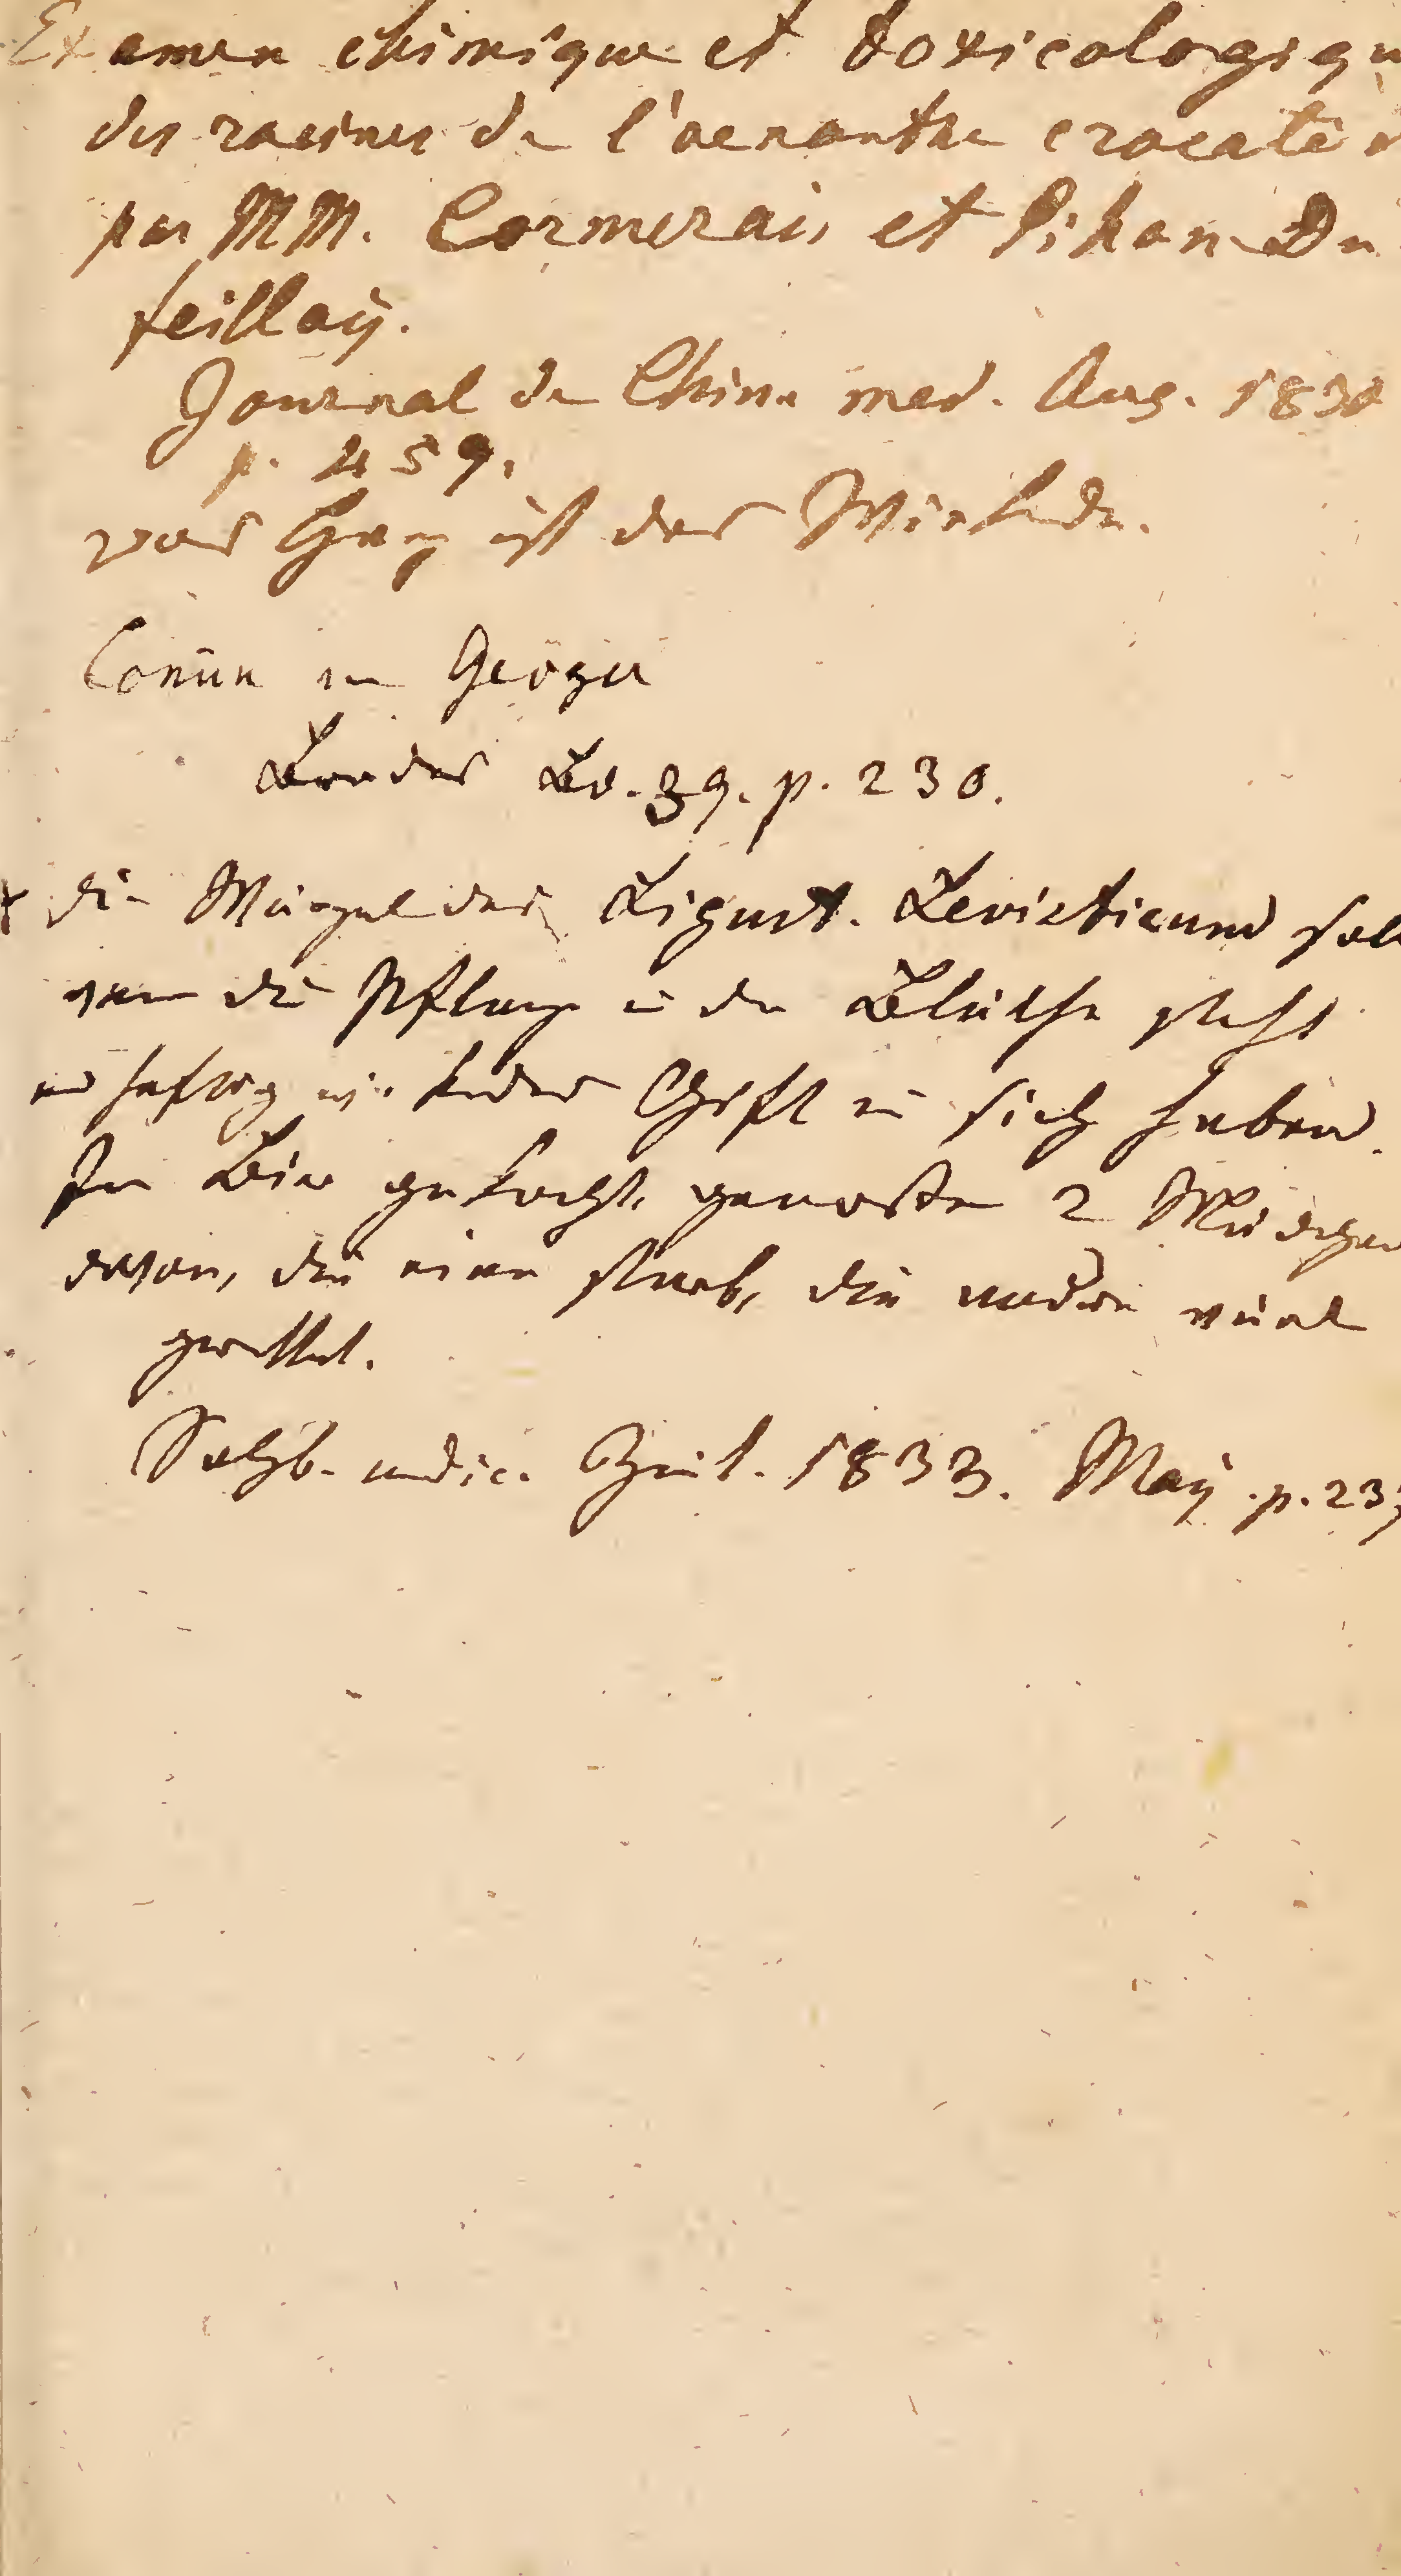 Examen chimique et toxicologiqu
des racines de l'oenanthe crocate
par MM. Cormerais et Pihan Du
feillaÿ.
Journal de Chim. med. Aug. 1830
p. 459.
das Harz ist das Wirkende.
Coniin in
Brandes Bd. 39. p. 230.
die Wurzel des Ligust. Levisticum soll
wenn die Pflanze in der Blüthe steht
ein heftig Gift in sich haben.
In Bier gekocht, genossen 2 Mädchen
davon, die eine starb, die andere
gerettet.
Salzb. medic. Zeit. 1833. Maÿ. p. 23